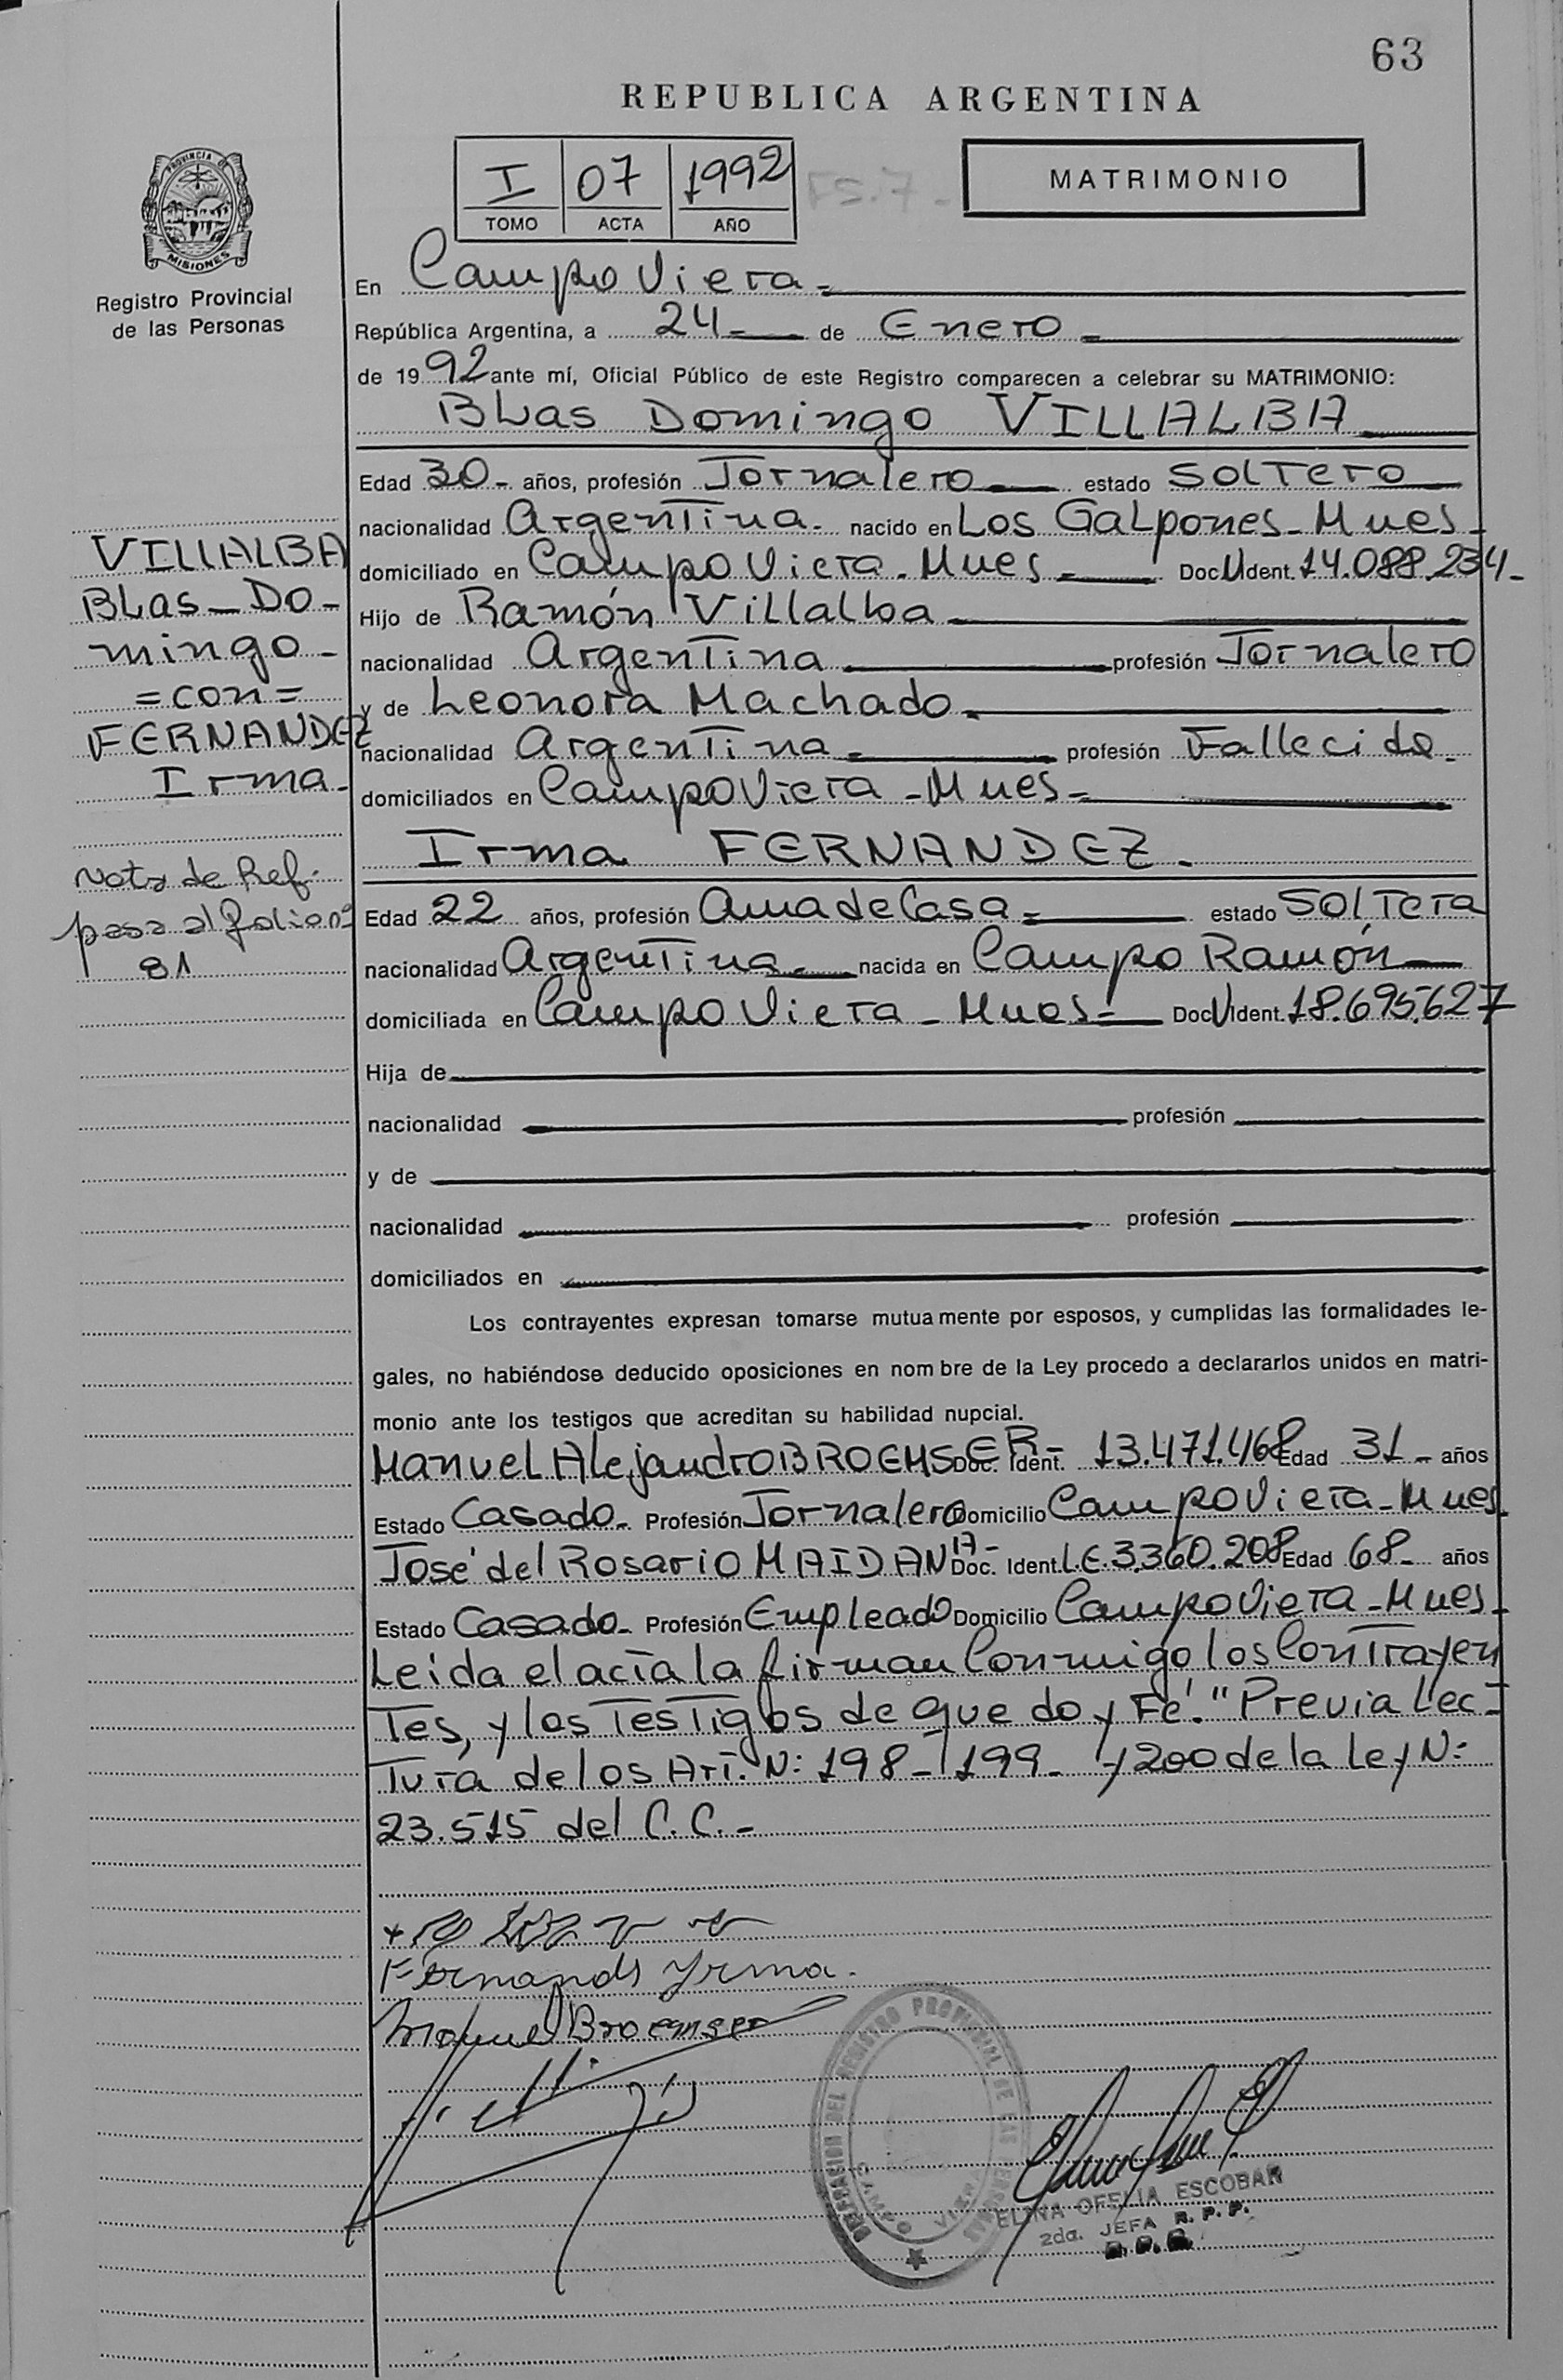 63
REPUBLICA ARGENTINA
I 07 1992
TOMO ACTA AÑO
FS.7-
MATRIMONIO
PROVINCIA DE
MISIONES
Registro Provincial
de las Personas
En Campo Viera-
República Argentina, a 24- de Enero-
de 1992 ante mí, Oficial Público de este Registro comparecen a celebrar su MATRIMONIO:
BLas Domingo VILLALBA
Edad 30- años, profesión Jornalero estado SOLTERO
nacionalidad Argentina- nacido en Los GaLpones-Mnes-
domiciliado en Campo Viera-Mnes- Doc.U.Ident. 14.088.234-
Hijo de Ramón Villalba
nacionalidad Argentina profesión Jornalero
y de Leonora Machado-
nacionalidad Argentina- profesión Fallecida-
domiciliados en Campo Viera-Mnes-
VILLALBA
BLas-Do-
mingo-
=con=
FERNANDEZ
Irma-
Nota de Ref.
pasa al folio nº
81
Irma FERNANDEZ-
Edad 22 años, profesión Ama de Casa- estado SOLTERA
nacionalidad Argentina- nacida en Campo Ramón
domiciliada en Campo Viera-Mnes- Doc.U.Ident. 18.695.627
Hija de
nacionalidad profesión
y de
nacionalidad profesión
domiciliados en
Los contrayentes expresan tomarse mutuamente por esposos, y cumplidas las formalidades le-
gales, no habiéndose deducido oposiciones en nombre de la Ley procedo a declararlos unidos en matri-
monio ante los testigos que acreditan su habilidad nupcial.
Manuel Alejandro BROEMSER- Doc. Ident. 13.471.468 Edad 31- años
Estado Casado- Profesión Jornalero Domicilio Campo Viera-Mnes
José del Rosario MAIDANA- Doc. Ident. L.E.3.360.208 Edad 68- años
Estado Casado- Profesión Empleado Domicilio Campo Viera-Mnes-
Leída el acta la firman Conmigo los Contrayen
tes, y los Testigos de que doy Fé." Previa Lec-
Tura de los Art. N: 198-199- y 200 de la Ley N:
23.515 del C.C.-
Fernands Yrma.
Manuel Broemser
REGISTRO PROVINCIAL DE LAS PERSONAS
CAMPO VIERA
ELINA OFELIA ESCOBAR
2da. JEFA R. P. P.